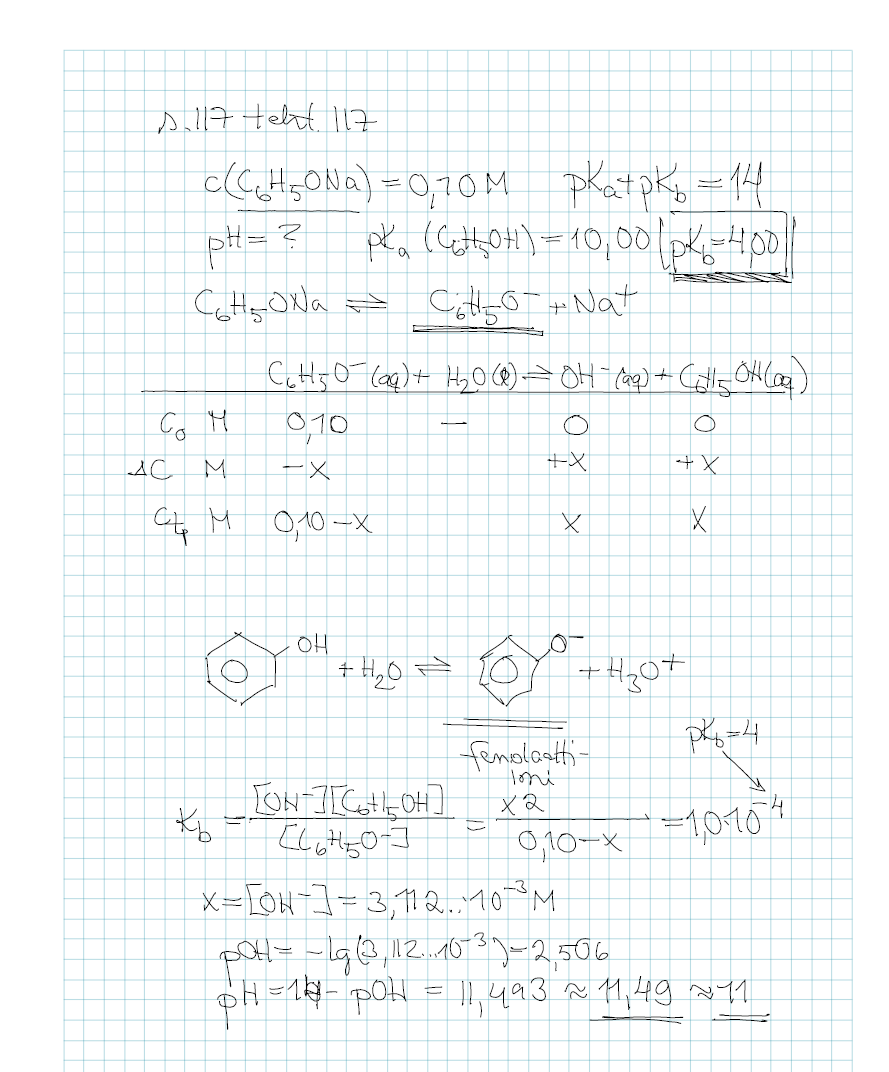 s.117 teht. 117
c(C₆H₅ONa) = 0,10 M pKa + pKb = 14
pH = ? pKa (C₆H₅OH) = 10,00 | pKb = 4,00 |
C₆H₅ONa ⇌ C₆H₅O⁻ + Na⁺
C₆H₅O⁻(aq) + H₂O(l) ⇌ OH⁻(aq) + C₆H₅OH(aq)
C₀ M 0,10 − 0 0
ΔC M −x +x +x
Ctp M 0,10−x x x
OH + H₂O ⇌ O⁻ + H₃O⁺
fenolaatti-
ioni
pKb = 4
Kb = [OH⁻][C₆H₅OH] / [C₆H₅O⁻] = x² / 0,10−x = 1,0·10⁻⁴
x = [OH⁻] = 3,112...·10⁻³ M
pOH = −lg(3,112...·10⁻³) = 2,506
pH = 14 − pOH = 11,493 ≈ 11,49 ≈ 11